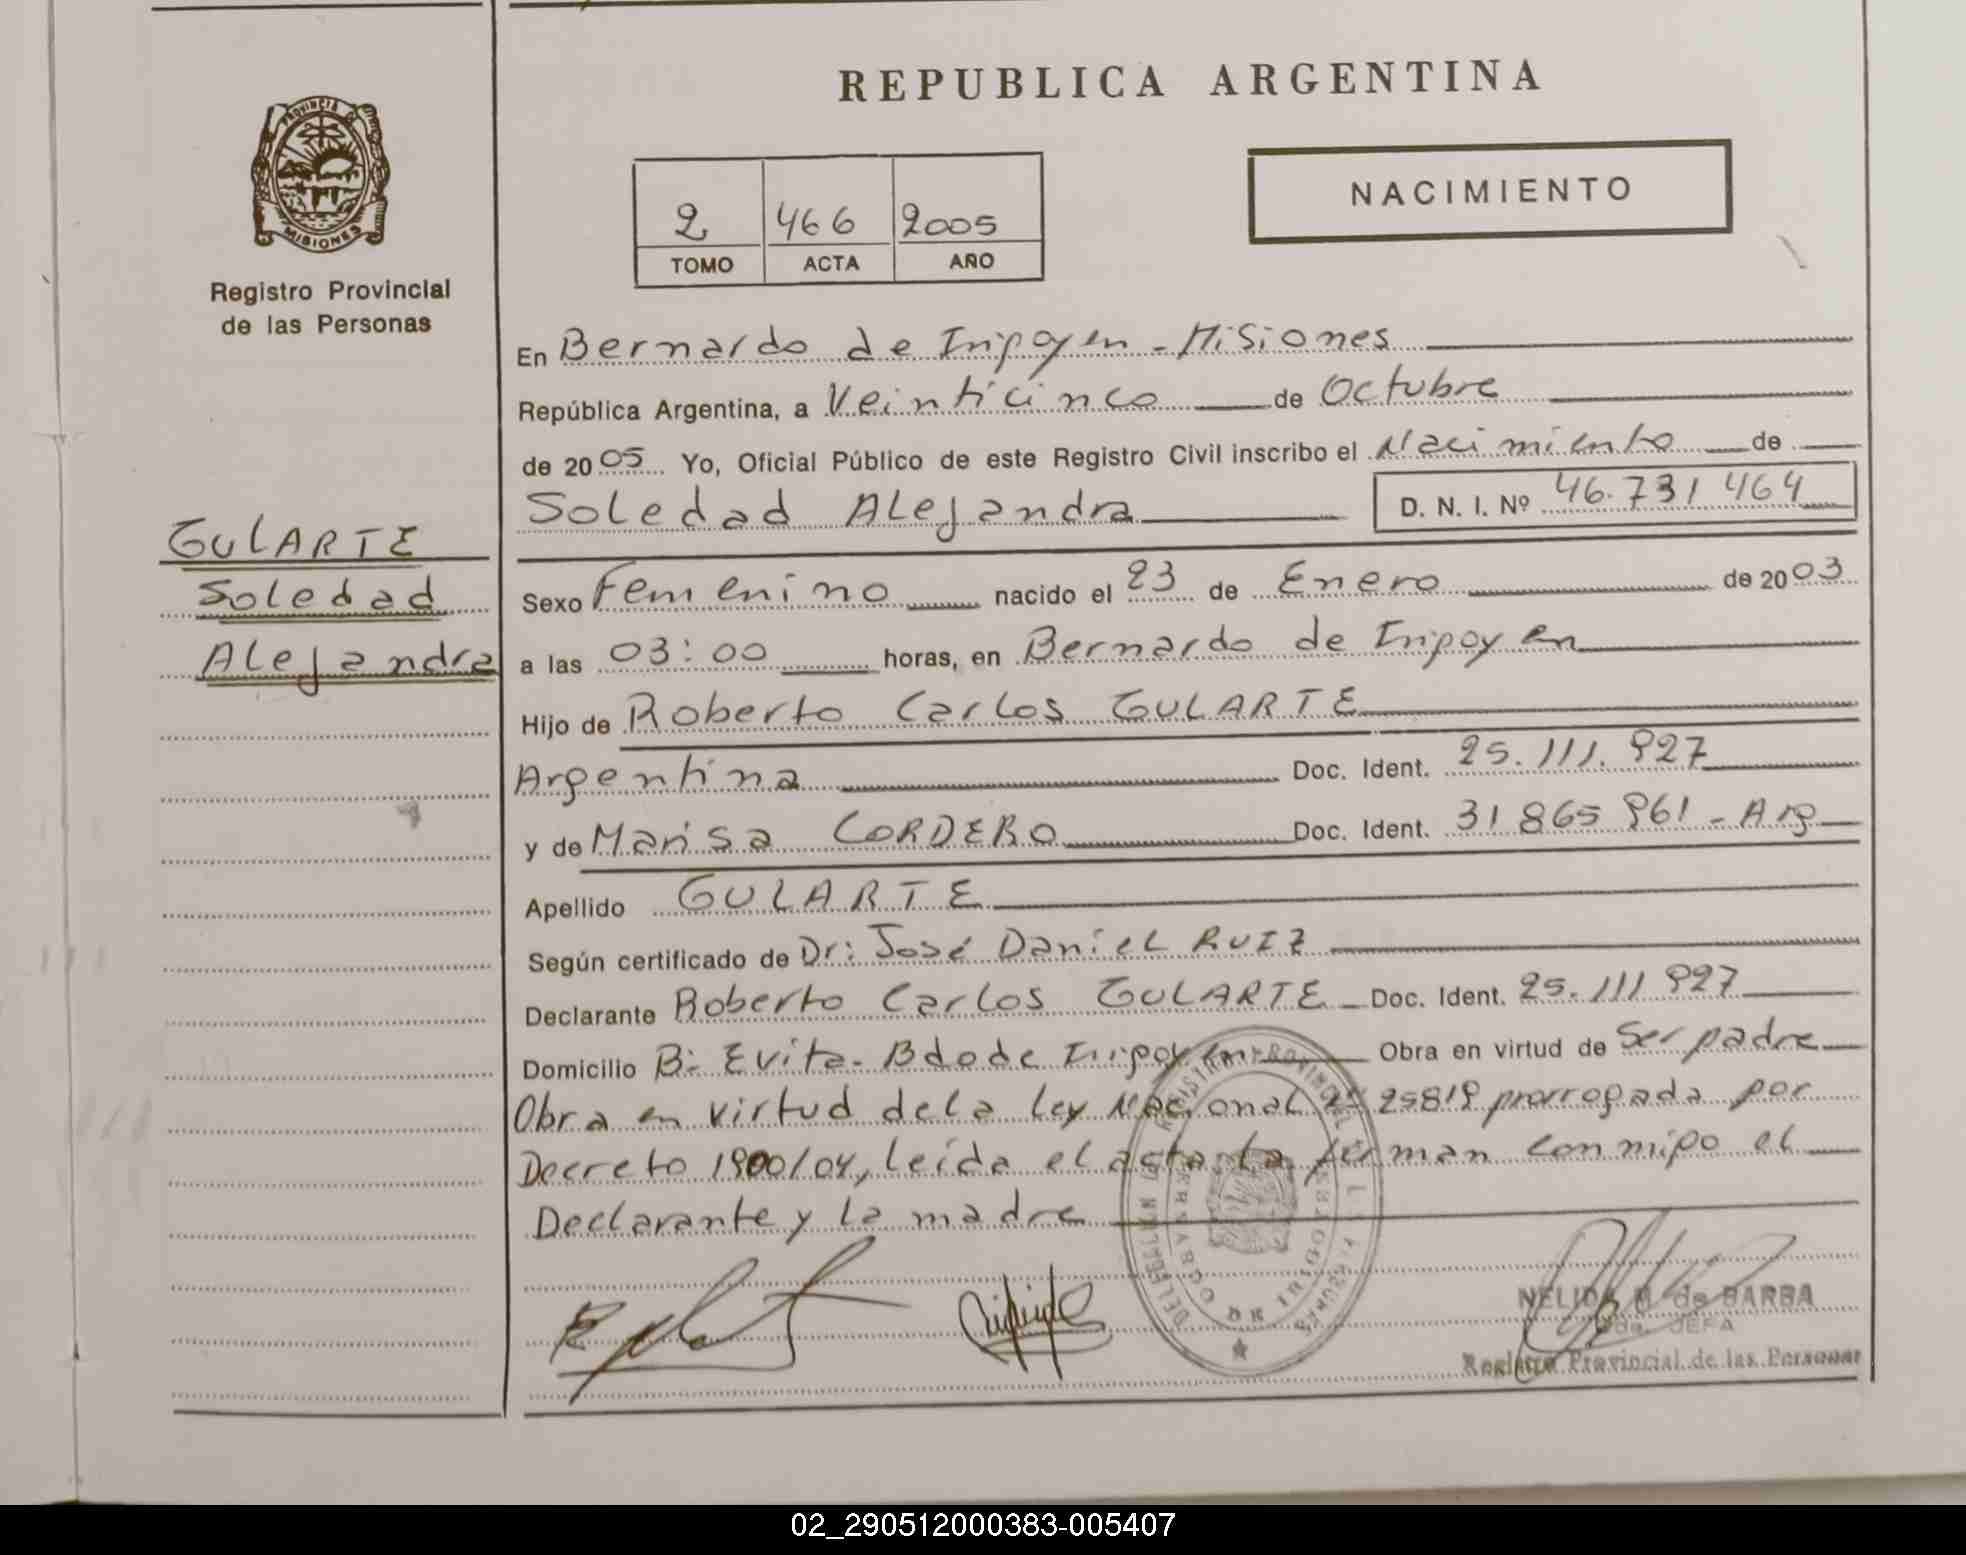 REPUBLICA ARGENTINA
PROVINCIA DE
MISIONES
Registro Provincial
de las Personas
2 466 2005
TOMO ACTA AÑO
NACIMIENTO
GULARTE
Soledad
Alejandra
En Bernardo de Irigoyen - Misiones
República Argentina, a Veinticinco de Octubre
de 2005 Yo, Oficial Público de este Registro Civil inscribo el Nacimiento de
Soledad Alejandra D. N. I. Nº 46.731 464
Sexo Femenino nacido el 23 de Enero de 2003
a las 03:00 horas, en Bernardo de Irigoyen
Hijo de Roberto Carlos GULARTE
Argentina Doc. Ident. 25.111.927
y de Marisa CORDERO Doc. Ident. 31 865 961 - Arg
Apellido GULARTE
Según certificado de Dr: José Daniel RUIZ
Declarante Roberto Carlos GULARTE Doc. Ident. 25.111 927
Domicilio B: Evita - Bdo de Irigoyen Obra en virtud de Ser padre
Obra en virtud de la Ley Nacional Nº 25819 prorrogada por
Decreto 1900/04, leída el acta la firman conmigo el
Declarante y la madre
NELIDA de BARBA
JEFA
Registro Provincial de las Personas
02_290512000383-005407